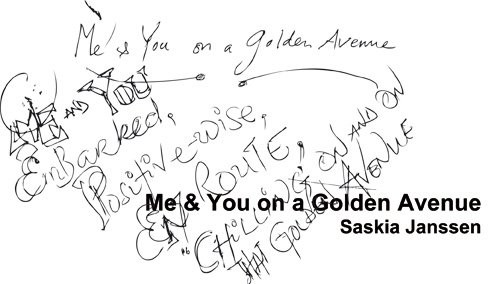 Me & You on a Golden Avenue
ME AND YOU
EmBarked,
Positive-wise,
EN ROUTE,
CHiLLING ON AND ON
THAT GOLDEN AVENUE
Me & You on a Golden Avenue
Saskia Janssen